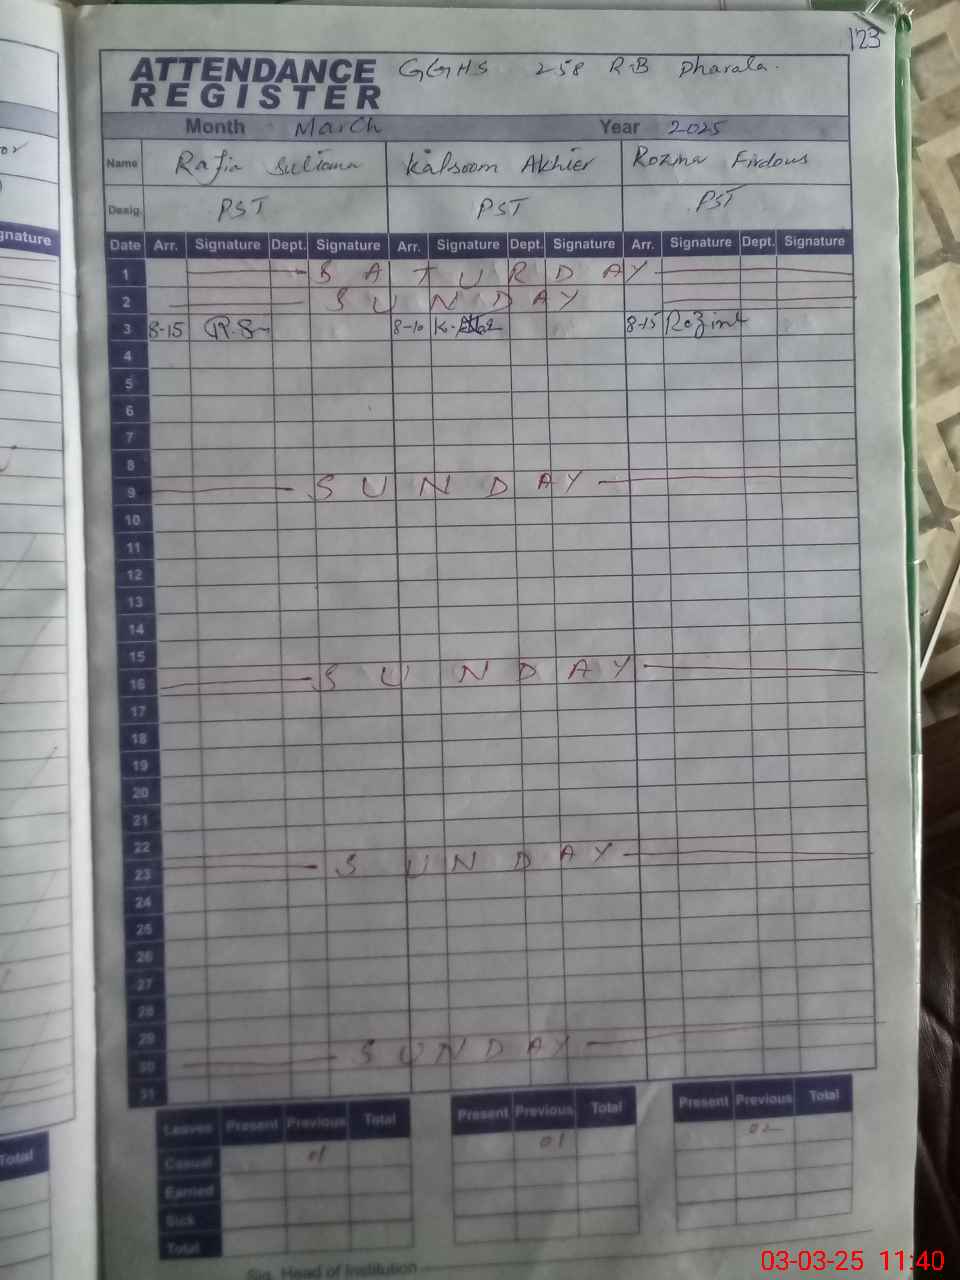 123
ATTENDANCE REGISTER GGHS 258 R-B Dharala.
Month March Year 2025
Name Rafia Sultana Kalsoom Akhter Rozina Firdous
Desig. PST PST PST
Date Arr. Signature Dept. Signature Arr. Signature Dept. Signature Arr. Signature Dept. Signature
1 SATURDAY
2 SUNDAY
3 8-15 R.S 8-10 K. 8-15 Rozina
4
5
6
7
8
9 SUNDAY
10
11
12
13
14
15
16 SUNDAY
17
18
19
20
21
22
23 SUNDAY
24
25
26
27
28
29
30 SUNDAY
31
Leaves Present Previous Total Present Previous Total Present Previous Total
Casual 01 01 02
Earned
Sick
Total
Sig. Head of Institution
gnature
Total
03-03-25 11:40